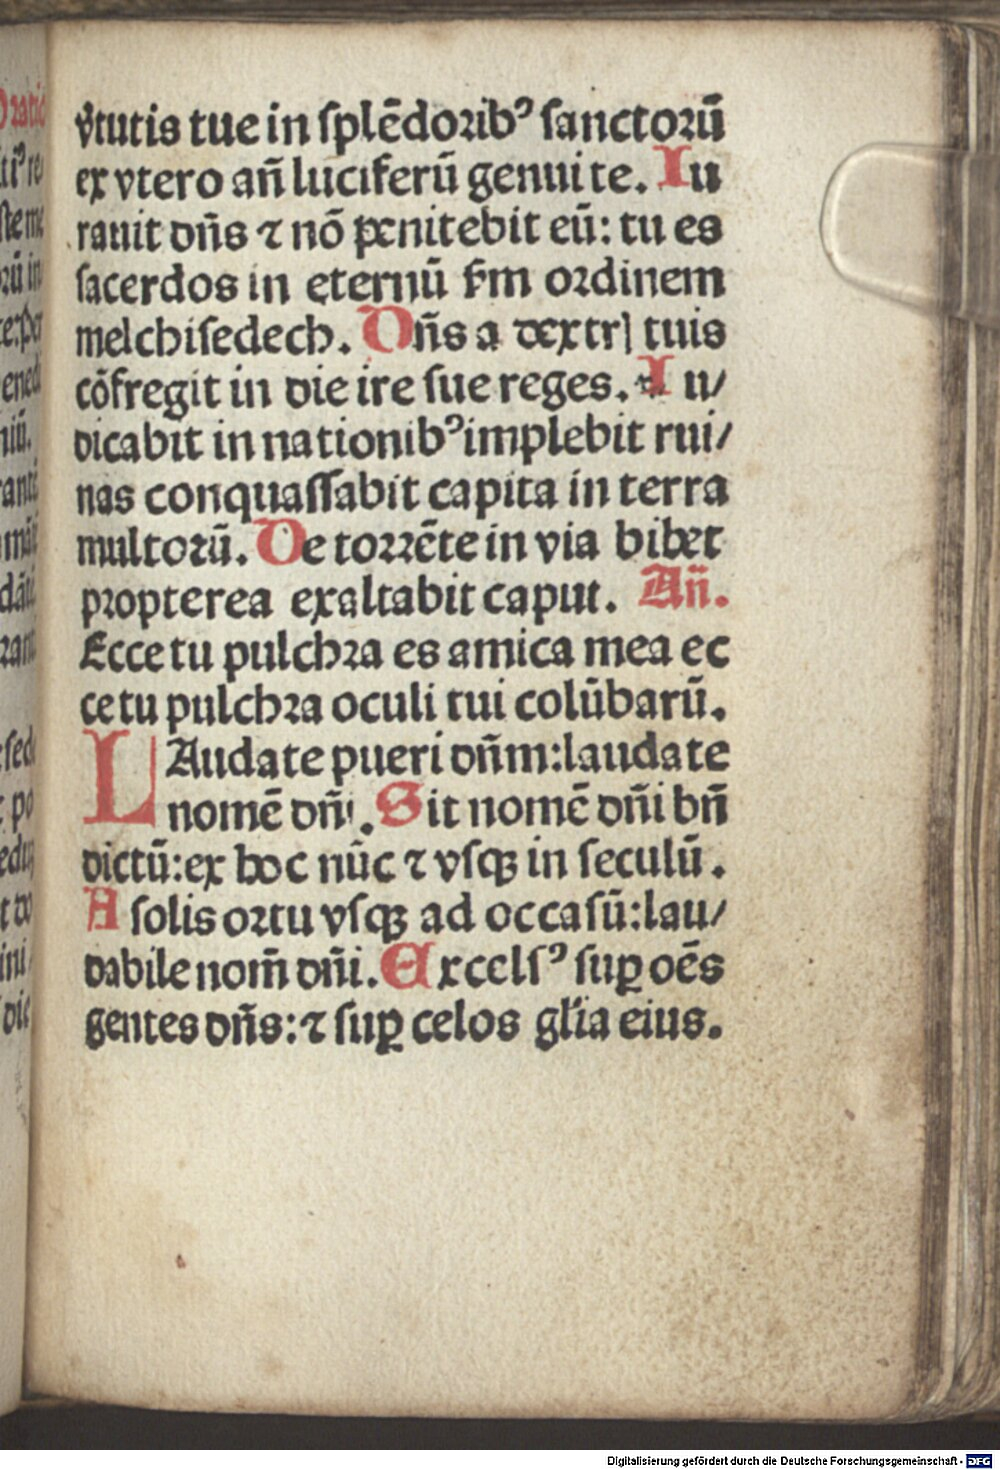 v̓tutis tue in ſplēdoꝛibꝰ ſanctoꝛū
ex vtero an̄ luciferū genui te. Iu
rauit dn̄s ⁊ nō penitebit eū: tu es
ſacerdos in eternū ẜm oꝛdinem
melchiſedech. Dn̄s a dextrꝭ tuis
cōfregit in die ire ſue reges. Iu/
dicabit in nationibꝰ implebit rui/
nas conquaſſabit capita in terra
multoꝛū. De toꝛrēte in via bibet
pꝛopterea exaltabit caput. An̄.
Ecce tu pulchꝛa es amica mea ec
ce tu pulchꝛa oculi tui colūbarū.
LAudate pueri dn̄m: laudate
nomē dn̄i. Sit nomē dn̄i bn̄
dictū: ex hoc nūc ⁊ vſqꝫ in ſeculū.
A ſolis oꝛtu vſqꝫ ad occaſū: lau/
dabile nom̄ dn̄i. Excelſꝰ ſuꝑ oēs
gentes dn̄s: ⁊ ſuꝑ celos gl̓ia eius.
Digitalisierung gefördert durch die Deutsche Forschungsgemeinschaft - DFG